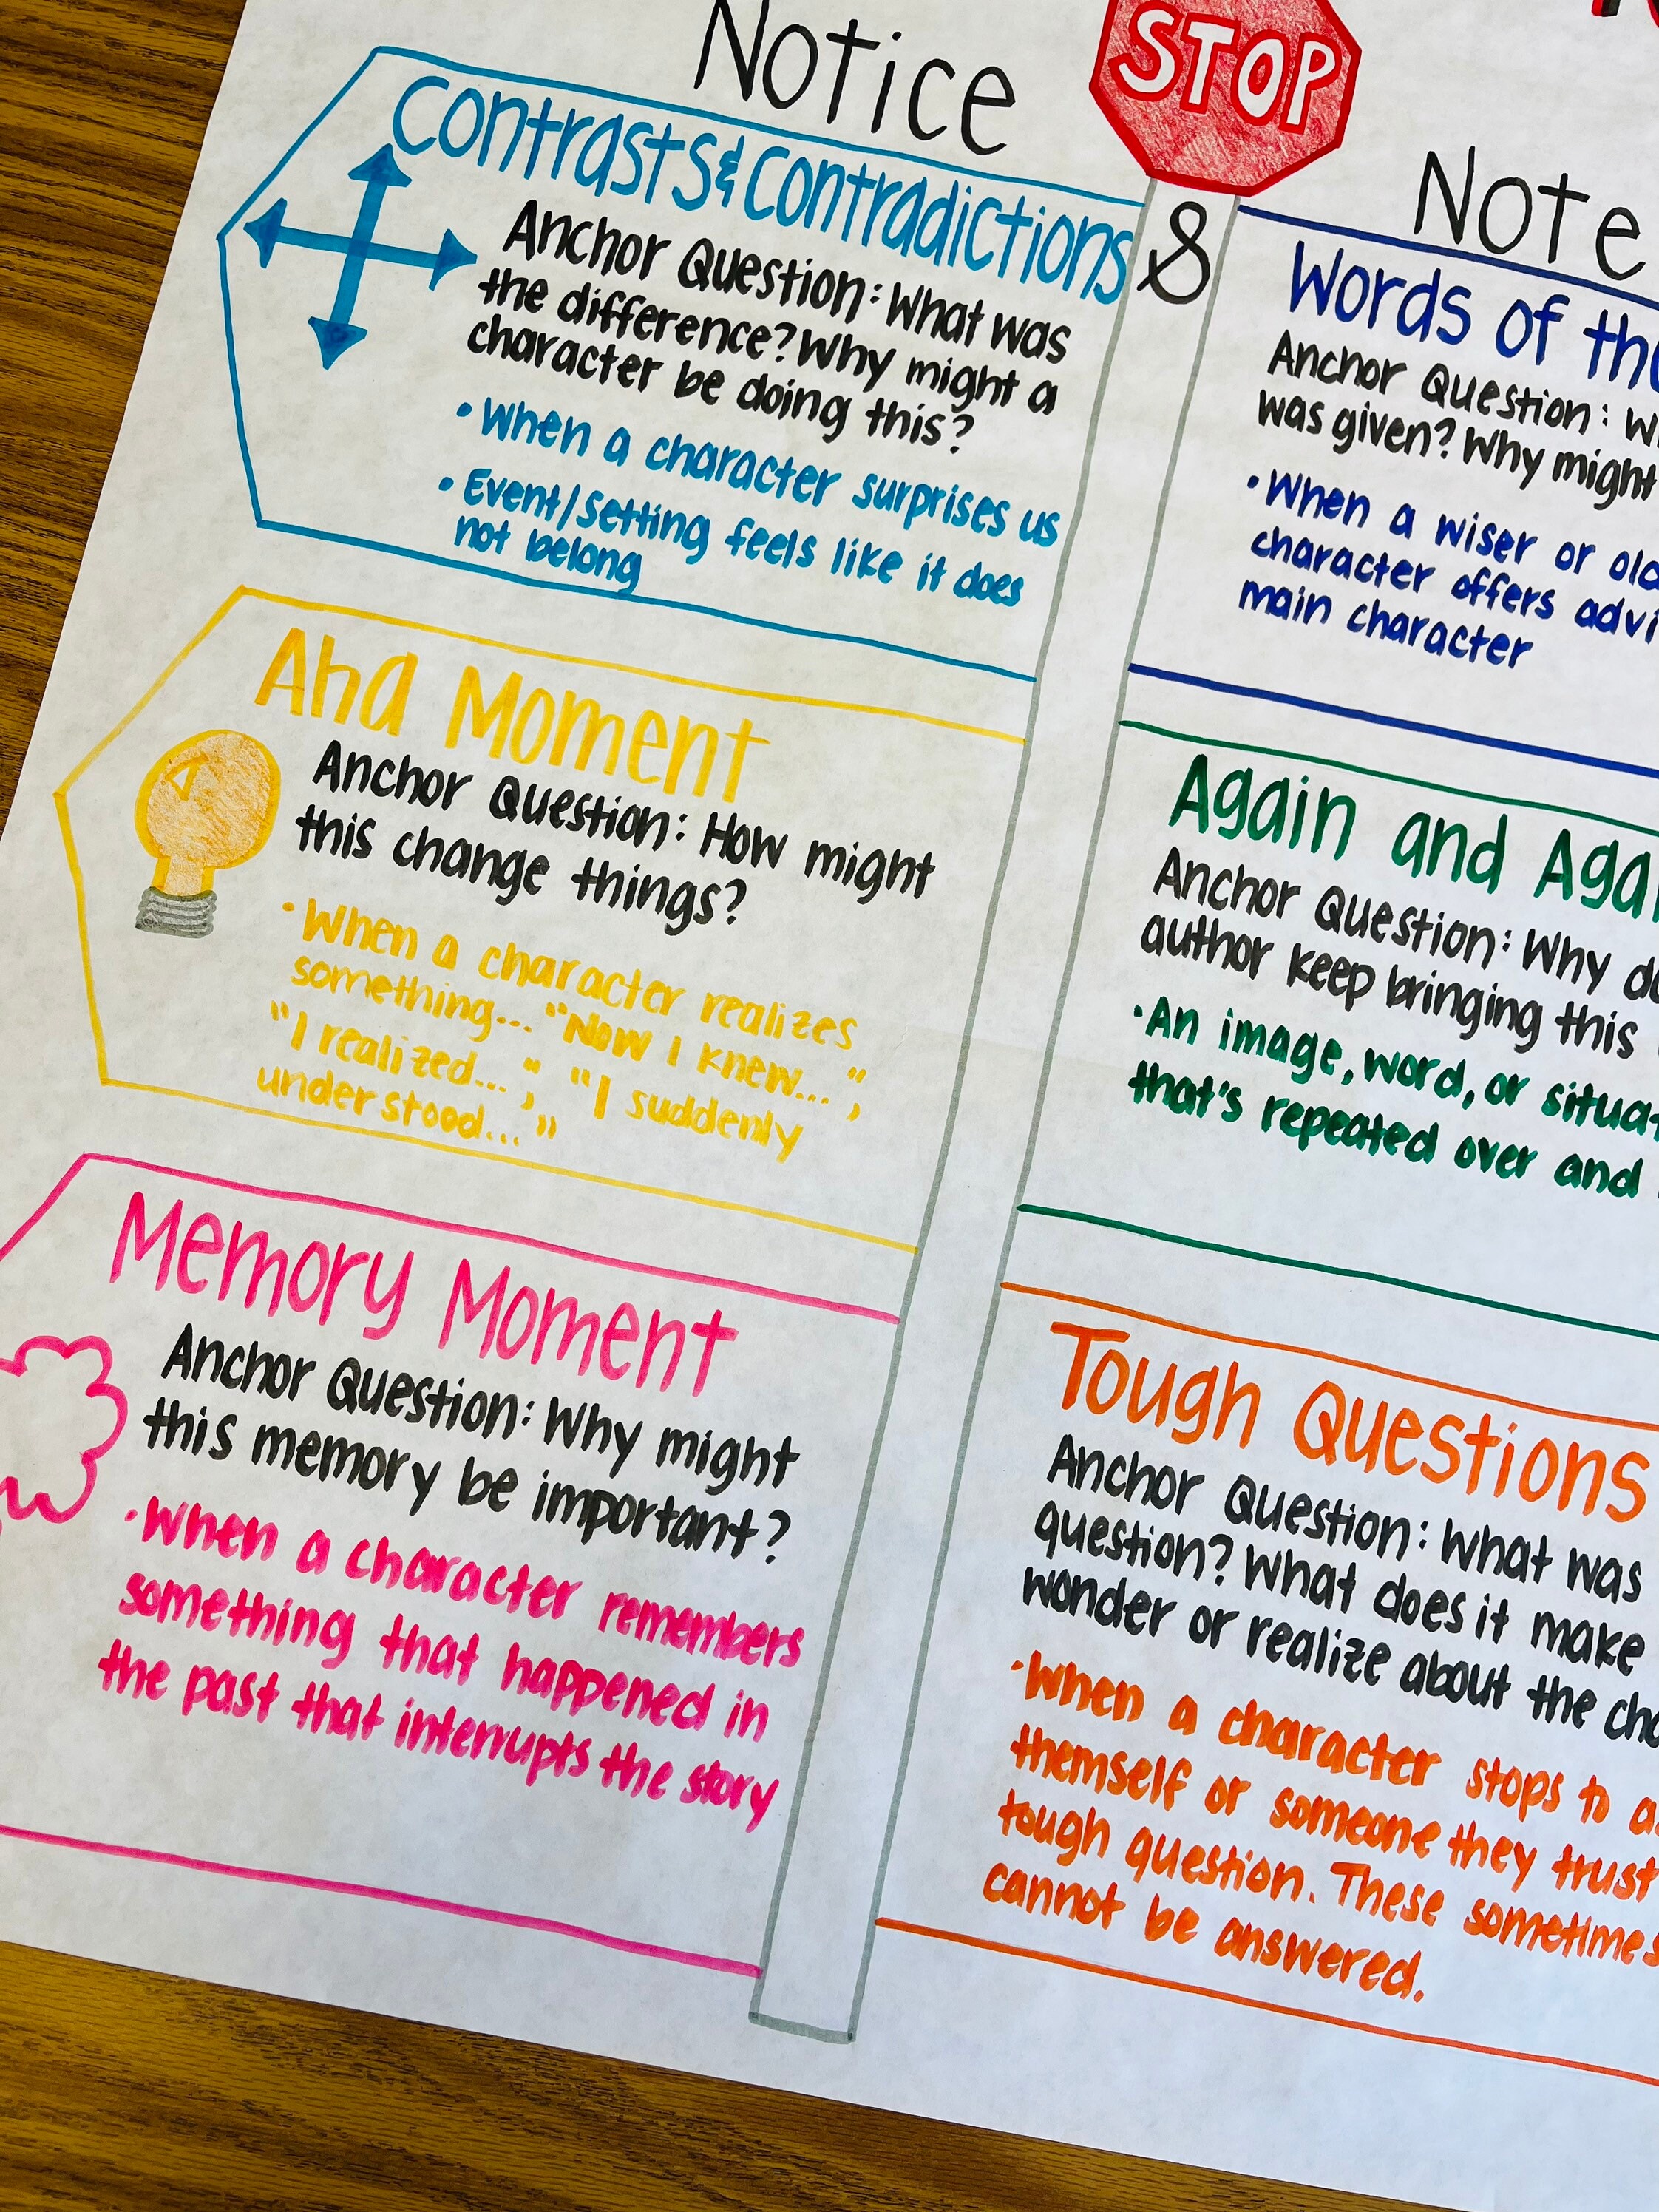 Notice
STOP
&
Note
Contrasts & Contradictions
Anchor Question: What was
the difference? Why might a
character be doing this?
• When a character surprises us
• Event/Setting feels like it does
not belong
Aha Moment
Anchor Question: How might
this change things?
• When a character realizes
something... "Now I knew...",
"I realized...", "I suddenly
understood..."
Memory Moment
Anchor Question: Why might
this memory be important?
• When a character remembers
something that happened in
the past that interrupts the story
Words of the
Anchor Question:
was given? Why might
• When a wiser or
character offers
main character
Again and
Anchor Question: Why
author keep bringing this
• An image, word, or
that's repeated over and
Tough Questions
Anchor Question: What was
question? What does it make
wonder or realize about the
• When a character stops to
themself or someone they trust
tough question. These sometimes
cannot be answered.